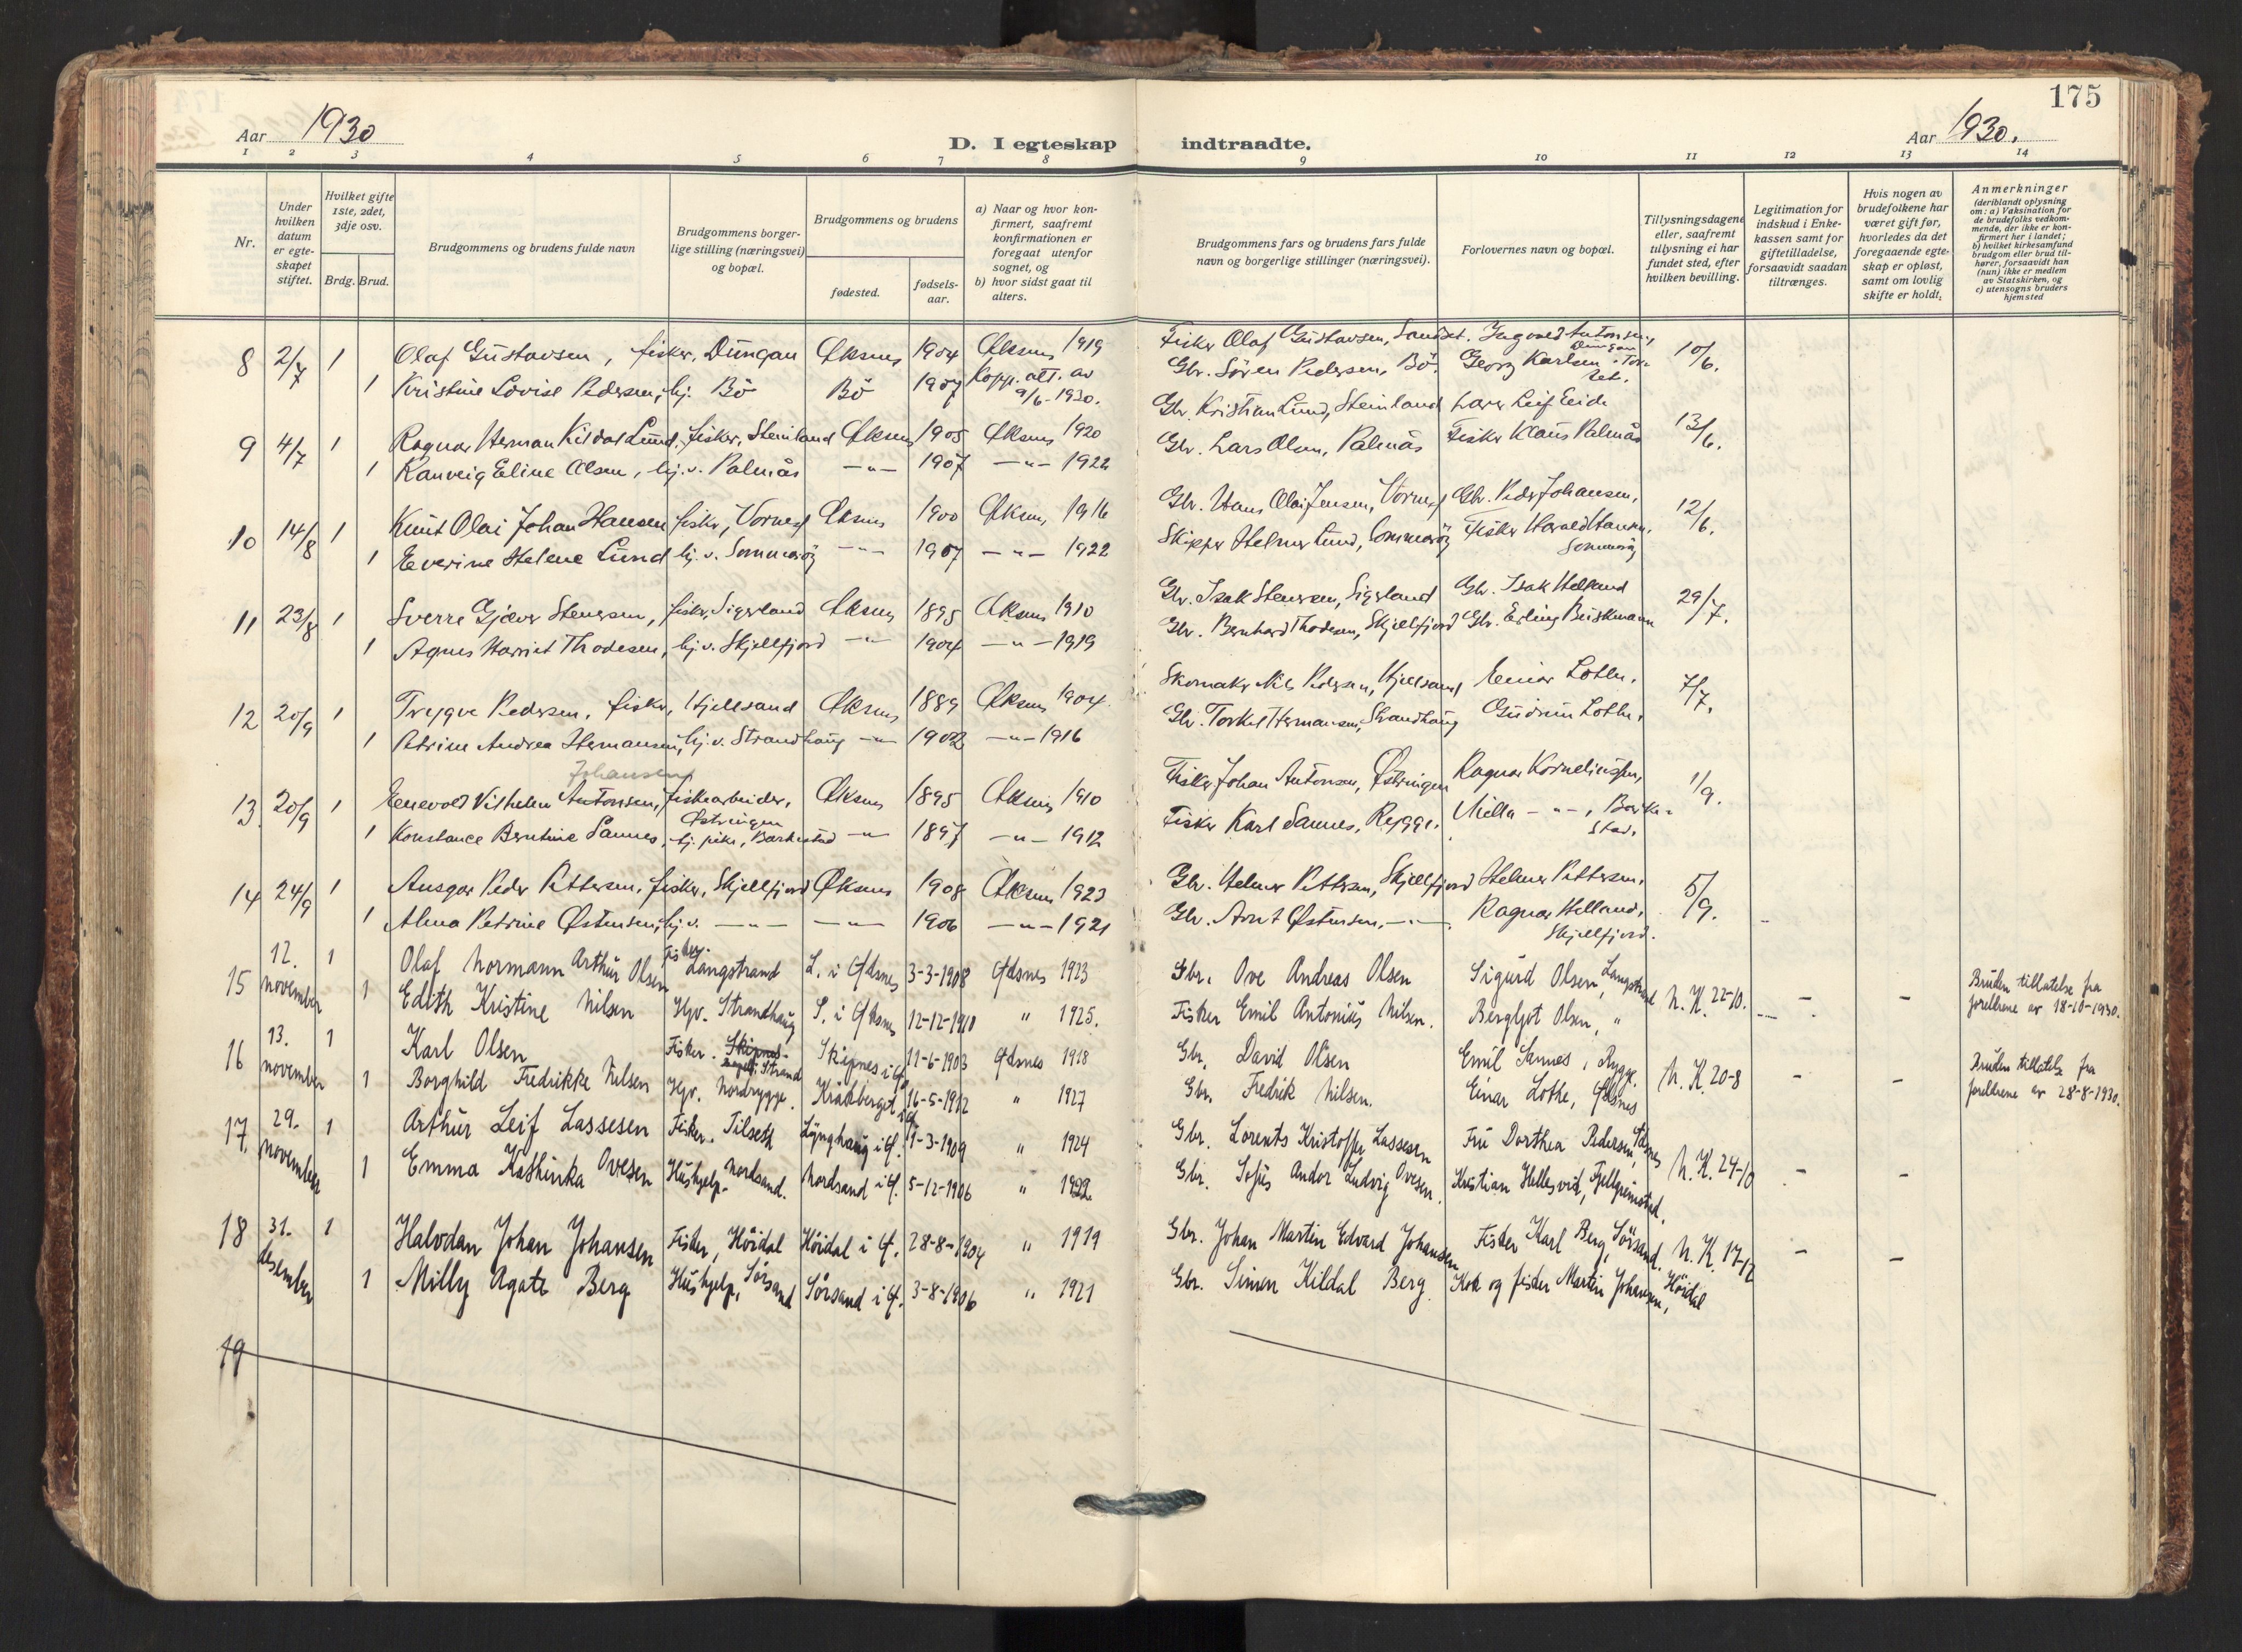 175
Aar 1930
D. I egteskap indtraadte.
Aar 1930.
1 2 3 4 5 6 7 8 9 10 11 12 13 14
Nr.
Under hvilken datum er egte-skapet stiftet.
Hvilket gifte 1ste, 2det, 3dje osv.
Brdg. Brud.
Brudgommens og brudens fulde navn
Brudgommens borger-lige stilling (næringsvei) og bopæl.
Brudgommens og brudens
fødested.
fødsels-aar.
a) Naar og hvor kon-firmert, saafremt konfirmationen er foregaat utenfor sognet, og
b) hvor sidst gaat til alters.
Brudgommens fars og brudens fars fulde navn og borgerlige stillinger (næringsvei).
Forlovernes navn og bopæl.
Tillysningsdagene eller, saafremt tillysning ei har fundet sted, efter hvilken bevilling.
Legitimation for indskud i Enke-kassen samt for giftetilladelse, forsaavidt saadan tiltrænges.
Hvis nogen av brudefolkene har været gift før, hvorledes da det foregaaende egte-skap er opløst, samt om lovlig skifte er holdt.
Anmerkninger (deriblandt oplysning om: a) Vaksination for de brudefolks vedkom-mende, der ikke er kon-firmert her i landet; b) hvilket kirkesamfund brudgom eller brud til-hører, forsaavidt han (hun) ikke er medlem av Statskirken, og c) utensogns bruders hjemsted
8 2/7 1 Olaf Gustavsen, fisker, Dungan Øksnes 1904 Øksnes 1919 Fisker Olaf Gustavsen, Sandset. Ingvald Antonsen, Dungan 10/6.
1 Kristine Lovise Pedersen, hj. Bö Bö 1907 Kopp. att. av 9/6-1930. Gbr. Sören Pedersen, Bö. Georg Karlsen
9 4/7 1 Ragnar Herman Kildal Lund, fisker, Steinland Øksnes 1905 Øksnes 1920 Gbr. Kristian Lund, Steinland Lærer Leif Eide 13/6.
1 Ranveig Eline Olsen, hj. v. Palmås -"- 1907 -"- 1922 Gbr. Lars Olsen, Palmås Fisker Klaus Palmås
10 14/8 1 Knut Olai Johan Hansen fisker, Vornes Øksnes 1900 Øksnes 1916 Gbr. Hans Olai Jensen, Vornes Gbr. Peder Johansen, 12/6.
1 Everine Helene Lund hj. v. Sommarøy -"- 1907 -"- 1922 Skipper Helmer Lund, Sommarøy Fisker Harald Hansen, Sommarøy
11 23/8 1 Sverre Gjæver Stenersen, fisker, Sigerland Øksnes 1895 Øksnes 1910 Gbr. Isak Stenersen, Sigerland Gbr. Isak Helland 29/7.
1 Agnes Harriet Thodesen, hj. v. Skjellfjord -"- 1904 -"- 1919 Gbr. Bernhard Thodesen, Skjellfjord Gbr. Erling Brinkmann
12 20/9 1 Trygve Pedersen, fisker, Hjellsand Øksnes 1889 Øksnes 1904. Skomaker Nils Pedersen, Hjellsand Einar Lothe. 7/7.
1 Petrine Andrea Hermansen, hj. v. Strandhaug -"- 1902 -"- 1916 Gbr. Torkel Hermansen, Strandhaug Gudrun Lothe.
Johansen
13. 20/9 1 Enevold Vilhelm Antonsen, fiskearbeider, Østringen Øksnes 1895 Øksnes 1910 Fisker Johan Antonsen, Østringen Ragnar Korneliussen, 1/9.
1 Konstance Berntine Sannes, hj. pike, Barkestad -"- 1897 -"- 1912 Fisker Karl Sannes, Rygge. Milla -"-, Barke-stad.
14 24/9 1 Ansgar Peder Pettersen, fisker, Skjellfjord Øksnes 1908 Øksnes 1923 Gbr. Helmer Pettersen, Skjellfjord Helmer Pettersen. 5/9.
1 Alma Petrine Østensen, hj. v. -"- -"- 1906 -"- 1921 Gbr. Arnt Østensen, -"-. Ragnar Helland, Skjellfjord.
15 12. november 1 Olaf Normann Arthur Olsen Fisker. Langstrand L. i Øksnes 3-3-1908 Øksnes 1923 Gbr. Ove Andreas Olsen Sigurd Olsen, Langstrand N.K. 22-10. - - Bruden tillatelse fra foreldrene av 18-10-1930.
1 Edith Kristine Nilsen Hv. Strandhaug S. i Øksnes 12-12-1910 " 1925. Fisker Emil Antonius Nilsen. Bergljot Olsen, "
16 13. november 1 Karl Olsen Fisker. Strand Skipnes i Ø. 11-6-1903 Øksnes 1918 Gbr. David Olsen Emil Sannes, Rygge. N.K. 20-8 - - Bruden tillatelse fra foreldrene av 28-8-1930.
1 Borghild Fredrikke Nilsen Hv. Nordrygge. Kråkberget i Ø. 16-5-1912 " 1927 Gbr. Fredrik Nilsen. Einar Lothe, Øksnes
17. 29. november 1 Arthur Leif Lassesen Fisker. Tilseth Lynghaug i Ø. 11-3-1909 " 1924 Gbr. Lorents Kristoffer Lassesen Fru Dorthea Pedersen, Øksnes N.K. 24-10 - -
1 Emma Kathinka Ovesen Hushjelp. Nordsand. Nordsand i Ø. 5-12-1906 " 1922 Gbr. Sofus Andor Ludvig Ovesen. Kristian Hellesvik,
18 31. desember 1 Halvdan Johan Johansen Fisker, Höidal Höidal i Ø. 28-8-1904 " 1919 Gbr. Johan Martin Edvard Johansen Fisker Karl Berg, Sörsand. N.K. 17-12 - -
1 Milly Agate Berg Hushjelp, Sörsand Sörsand i Ø. 3-8-1906 " 1921 Gbr. Simon Kildal Berg. Kok og fisker Martin Johansen, Höidal
19